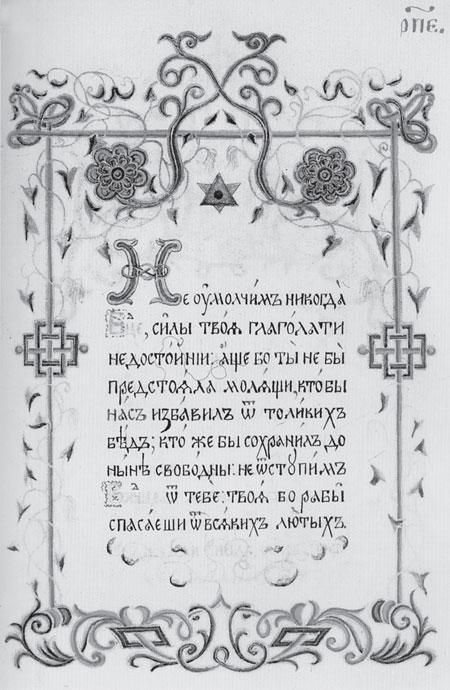 рп҃е.
Не оу҆молчи́мъ никогда̀
Бц҃е, си́лы твоѧ̑ глаго́лати
недосто́йнїи: а҆́ще бо ты̀ не бы̀
предстоѧ́ла молѧ́щи, кто́ бы
на́съ и҆зба́вилъ ѿ толи́кихъ
бѣ́дъ; кто́ же бы сохрани́лъ до
ны́нѣ свобо́дны: не ѿсту́пимъ
ѿ тебє̀: твоѧ̑ бо рабы̑
спаса́еши ѿ всѧ́кихъ лю́тыхъ.